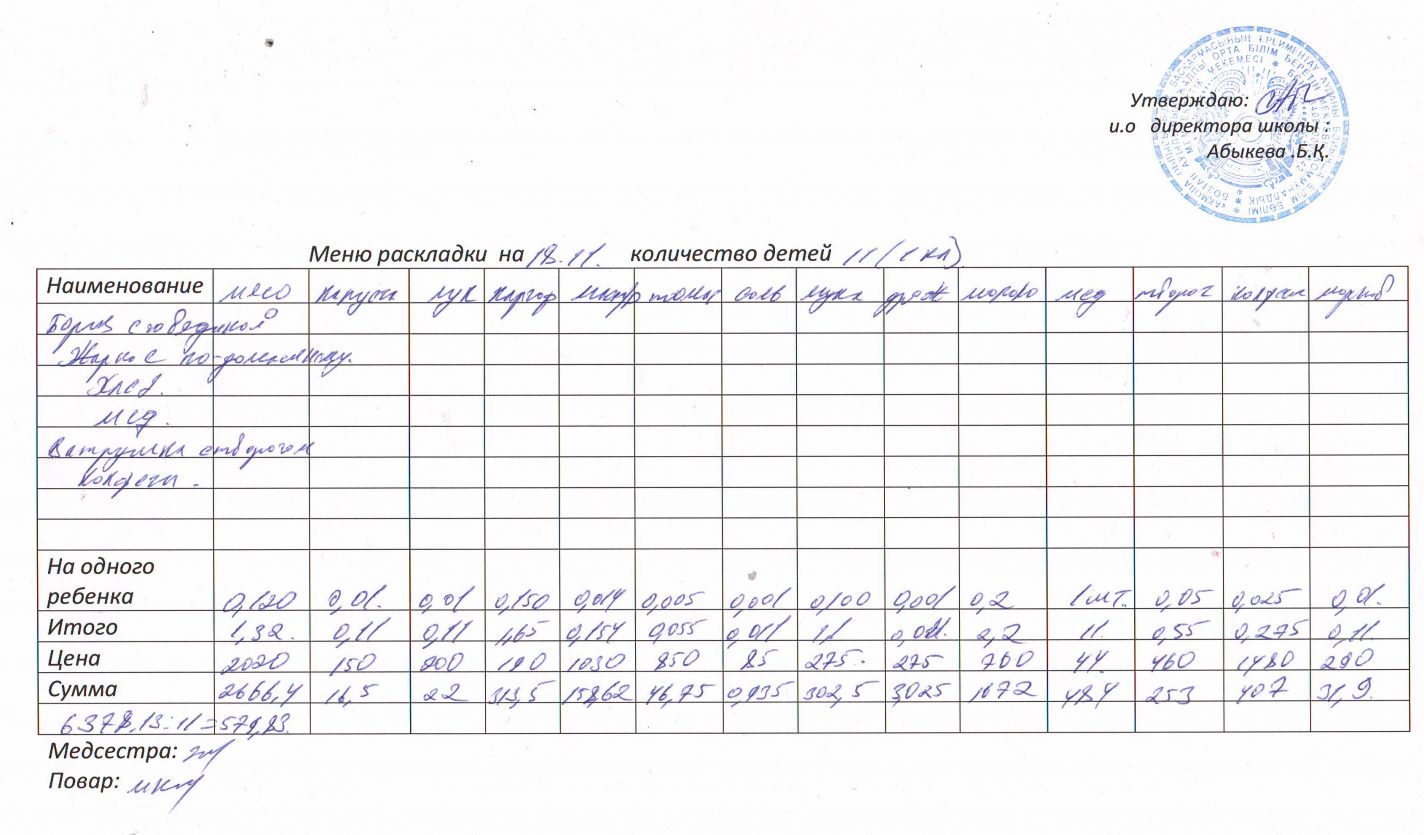 Утверждаю:
и.о директора школы :
Абыкева .Б.Қ.
Меню раскладки на 18.11. количество детей 11 (1 кл)
Наименование мясо капуста лук картоф масло томат соль мука дрож мед творог
Борщ с говядиной
Жаркое по-домашнему.
Хлеб.
мед.
Ватрушка с творогом
Конфеты.
На одного
ребенка 0,120 0,01. 0,01 0,150 0,014 0,005 0,001 0,100 0,001 0,2 1 шт. 0,05 0,025 0,01.
Итого 1,32. 0,11 0,11 1,65 0,154 0,055 0,011 1,1 0,011. 2,2 11. 0,55 0,275 0,11
Цена 2020 150 200 190 1030 850 85 275. 275 760 44. 460 1480 290
Сумма 2666,4 16,5 22 313,5 158,62 46,75 0,935 302,5 3025 1672 484 253 407 31,9.
6378,13:11=579,83.
Медсестра:
Повар: